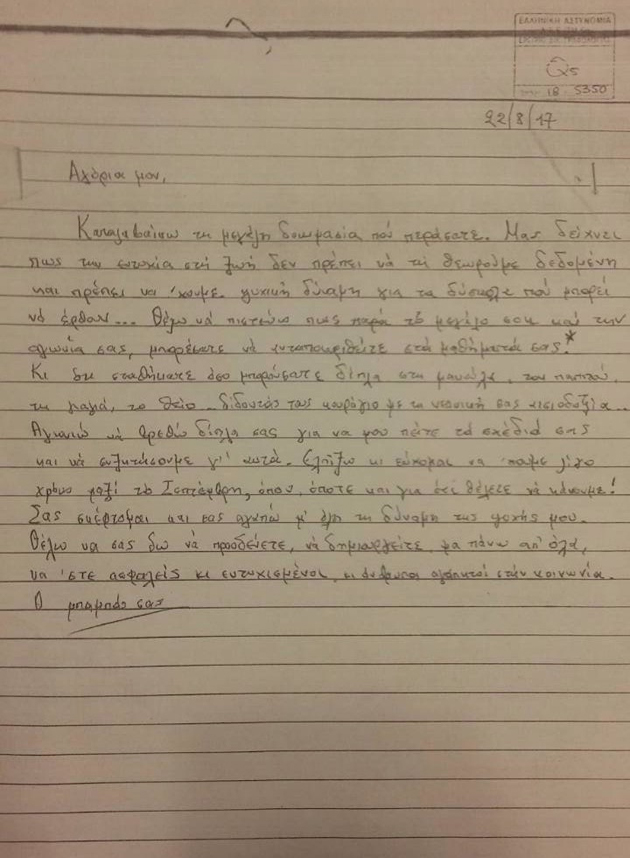 ΕΛΛΗΝΙΚΗ ΑΣΤΥΝΟΜΙΑ
Q5
18 5350
22/8/17
Αγόρια μου,
Καταλαβαίνω τη μεγάλη δοκιμασία πού περάσατε. Μας δείχνει
πως την ευτυχία στή ζωή δεν πρέπει νά τή θεωρούμε δεδομένη
και πρέπει να 'χουμε ψυχική δύναμη για τα δύσκολα πού μπορεί
νά έρθουν... Θέλω νά πιστεύω πως παρά τό μεγάλο σοκ καί την
αγωνία σας, μπορέσατε νά ανταποκριθείτε στά μαθήματά σας!*
Κι ότι σταθήκατε όσο μπορούσατε δίπλα στη μανούλα, τον παππού,
τη γιαγιά, το θείο.. δίδοντάς τους κουράγιο με τη νεανική σας αισιοδοξία..
Αγωνιώ νά βρεθώ δίπλα σας για να μου πείτε τά σχέδιά σας
και νά συζητάσουμε γι' αυτά. Ελπίζω κι εύχομαι να 'παμε λίγο
χρόνο μαζί τό Σεπτέμβρη, όπου, όποτε και για ότι θέλετε νά κάνουμε!
Σας σκέφτομαι και σας αγαπώ μ' όλη τη δύναμη της ψυχής μου.
Θέλω να σας δω νά προοδεύετε, νά δημιουργείτε, μα πάνω απ' όλα,
να 'στε ασφαλείς κι ευτυχισμένοι, κι άνθρωποι αγαπητοί στήν κοινωνία.
Ο μπαμπάς σας